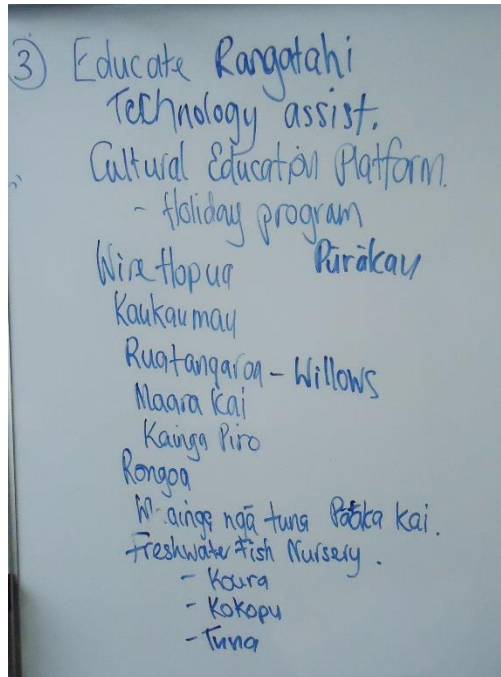 3 Educate Rangatahi
Technology assist.
Cultural Education Platform.
- Holiday program
Wire Hopua Pūrākau
Kaukaumau
Ruatangaroa - Willows
Maara Kai
Kainga Piro
Rongoa
ngā tuna Pātaka Kai.
Freshwater Fish Nursery.
- Koura
- Kokopu
- Tuna